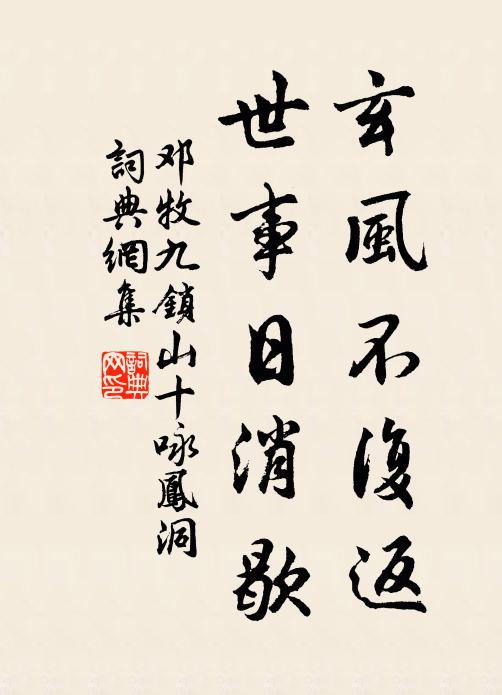 玄風不復返
世事日消歇
邓牧九鎖山十咏鳳洞
詞典網集
詞典网印